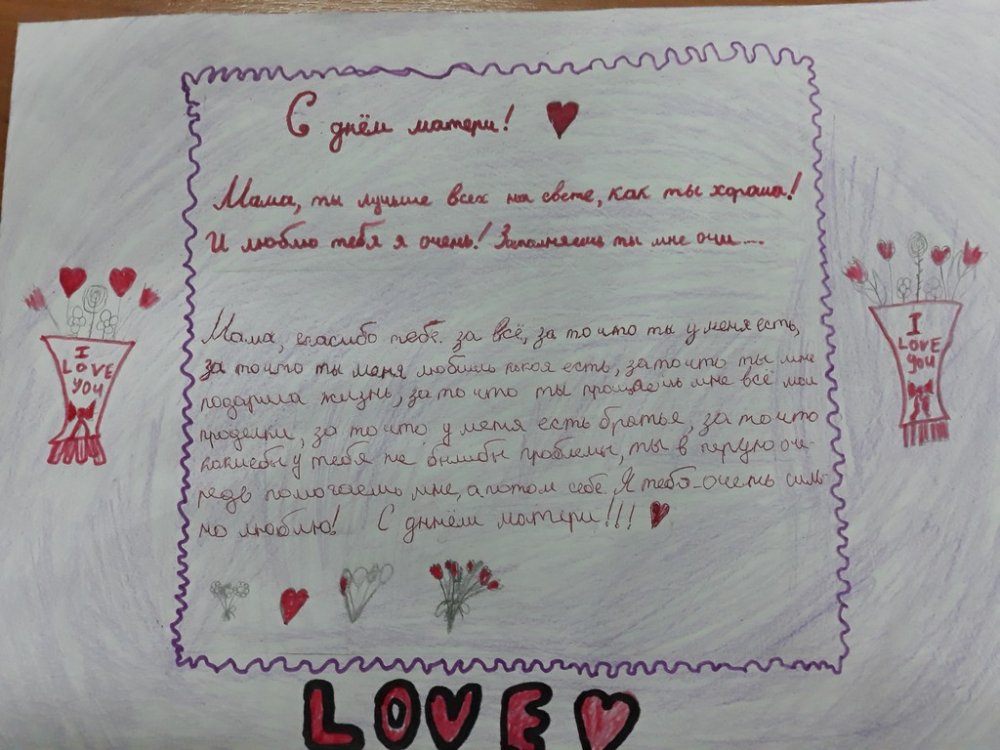 С днём матери!
Мама, ты лучше всех на свете, как ты хороша!
И люблю тебя я очень! Заполняешь ты мне очи....
Мама, спасибо тебе за всё, за то что ты у меня есть,
за то что ты меня любишь такой есть, за то что ты мне
подарила жизнь, за то что ты прощаешь мне все мои
проделки, за то что у меня есть братья, за то что
какиебы у тебя не былибы проблемы, ты в первую оче-
редь помогаешь мне, а потом себе. Я тебя очень силь-
но люблю! С дннём матери!!!
I
LOVE
YOU
I
LOVE
YOU
LOVE